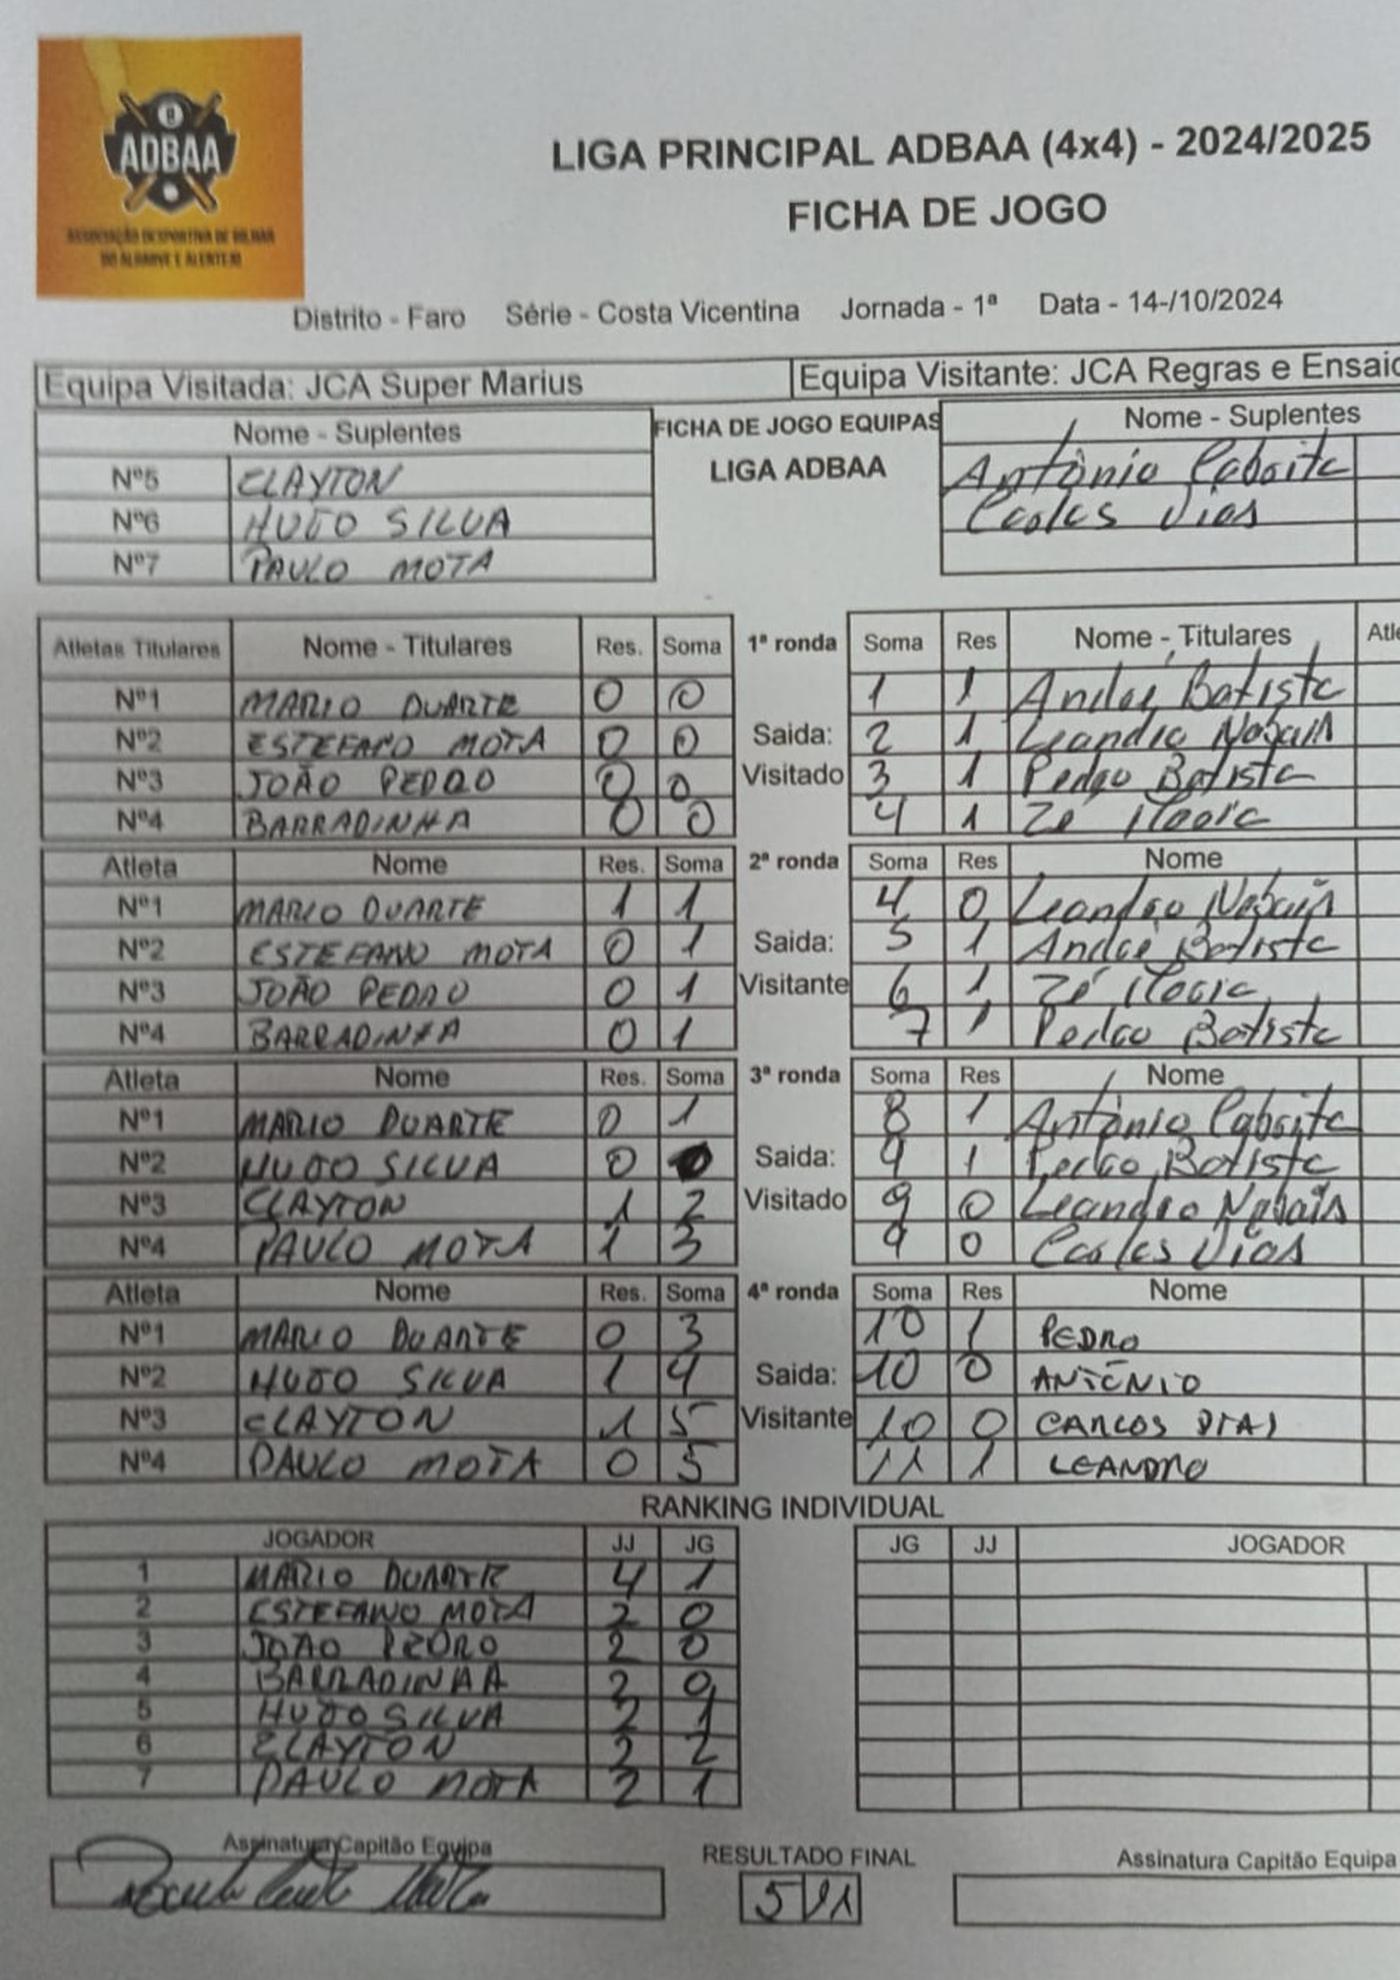 ADBAA
ASSOCIAÇÃO DESPORTIVA DE BILHAR
DO ALGARVE E ALENTEJO
LIGA PRINCIPAL ADBAA (4x4) - 2024/2025
FICHA DE JOGO
Distrito - Faro Série - Costa Vicentina Jornada - 1ª Data - 14-/10/2024
Equipa Visitada: JCA Super Marius Equipa Visitante: JCA Regras e Ensaio
Nome - Suplentes FICHA DE JOGO EQUIPAS Nome - Suplentes
LIGA ADBAA
Nº5 CLAYTON António
Nº6 HUGO SILVA Carlos Dias
Nº7 PAULO MOTA
Atletas Titulares Nome - Titulares Res. Soma 1ª ronda Soma Res Nome - Titulares Atle
Nº1 MARIO DUARTE 0 0 1 1 André Batista
Nº2 ESTEFANO MOTA 0 0 Saida: 2 1 Leandro Nobais
Nº3 JOÃO PEDRO 0 0 Visitado 3 1 Pedro Batista
Nº4 BARRADINHA 0 0 4 1 Zé
Atleta Nome Res. Soma 2ª ronda Soma Res Nome
Nº1 MARIO DUARTE 1 1 4 0 Leandro Nobais
Nº2 ESTEFANO MOTA 0 1 Saida: 5 1 André Batista
Nº3 JOÃO PEDRO 0 1 Visitante 6 1 Zé
Nº4 BARRADINHA 0 1 7 1 Pedro Batista
Atleta Nome Res. Soma 3ª ronda Soma Res Nome
Nº1 MARIO DUARTE 0 1 8 1 António
Nº2 HUGO SILVA 0 Saida: 9 1 Pedro Batista
Nº3 CLAYTON 1 2 Visitado 9 0 Leandro Nobais
Nº4 PAULO MOTA 1 3 9 0 Carlos Dias
Atleta Nome Res. Soma 4ª ronda Soma Res Nome
Nº1 MARIO DUARTE 0 3 10 1 PEDRO
Nº2 HUGO SILVA 1 4 Saida: 10 0 ANTÓNIO
Nº3 CLAYTON 1 5 Visitante 10 0 CARLOS DIAS
Nº4 PAULO MOTA 0 5 11 1 LEANDRO
RANKING INDIVIDUAL
JOGADOR JJ JG JG JJ JOGADOR
1 MARIO DUARTE 4 1
2 ESTEFANO MOTA 2 0
3 JOÃO PEDRO 2 0
4 BARRADINHA 2 0
5 HUGO SILVA 2 1
6 CLAYTON 2 2
7 PAULO MOTA 2 1
Assinatura Capitão Equipa RESULTADO FINAL Assinatura Capitão Equipa
5 11